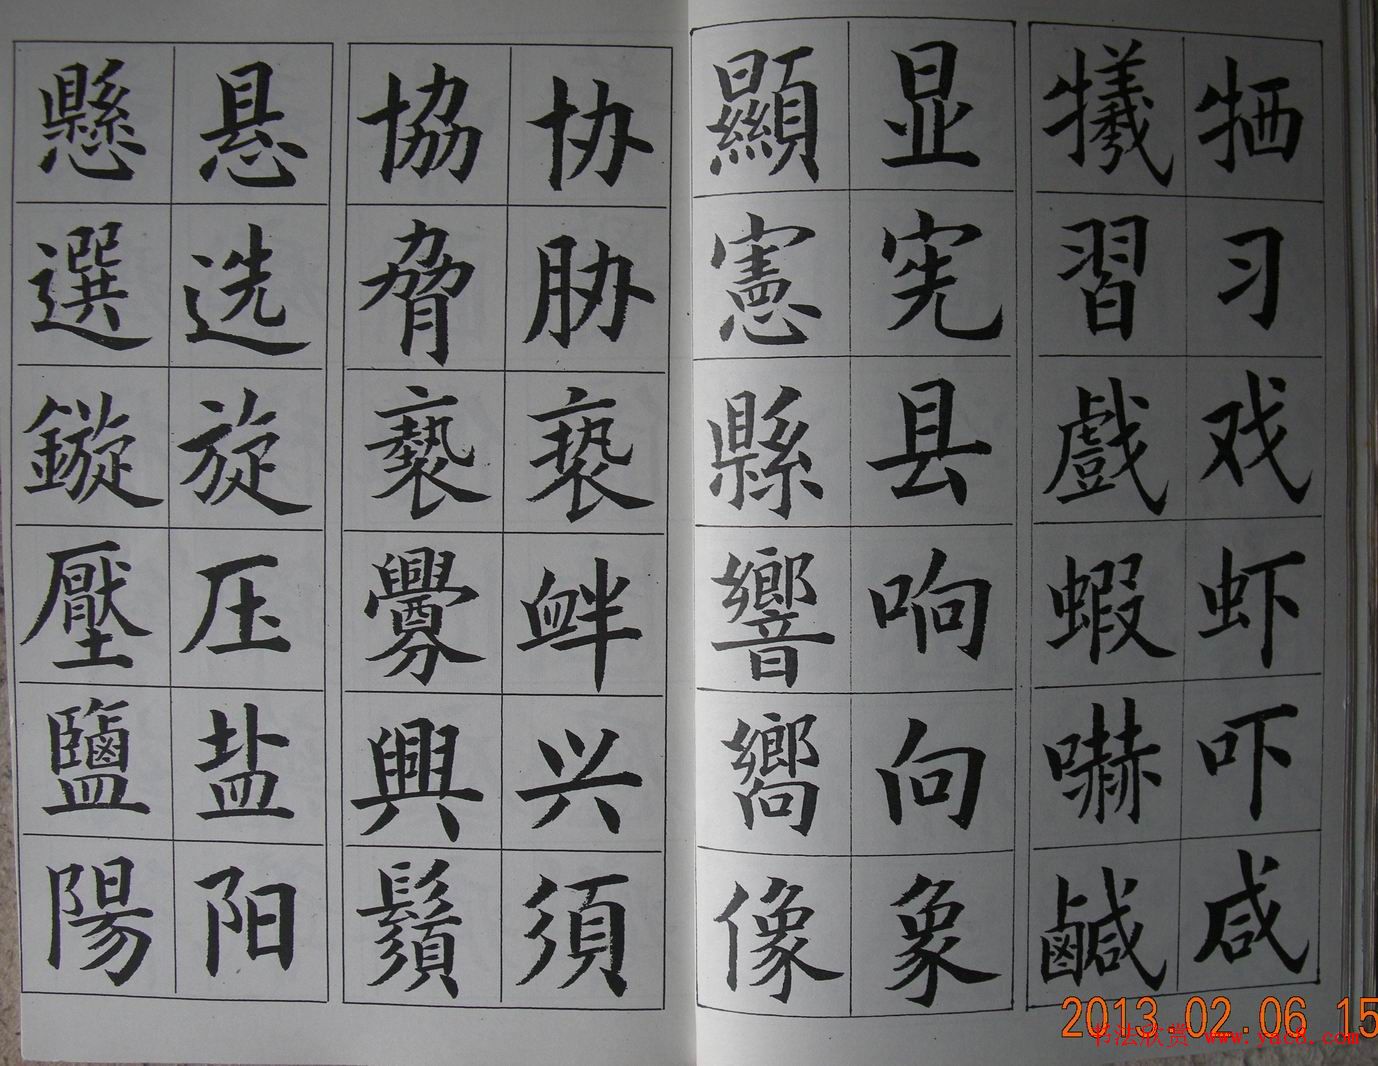 懸悬協协顯显犧牺
選选脅胁憲宪習习
鏇旋褻亵縣县戲戏
壓压釁衅響响蝦虾
鹽盐興兴嚮向嚇吓
陽阳鬚須像象鹹咸
2013.02.06 15
书法欣赏 www.yac8.com